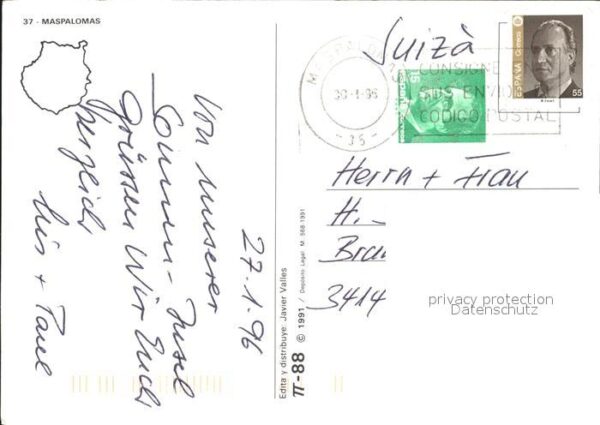 37 - MASPALOMAS
27.1.96
Von unserer
Sonnen-Insel
grüssen Wir Euch
herzlich
+ Paul
Edita y distribuye: Javier Valles
π-88 © 1991 / Depósito Legal M. 568-1991
Suiza
30-1-96
-35-
CONSIGNE
SUS ENVIO
CODIGO POSTAL
15
ESPAÑA Correos
55
Herrn + Frau
H.
Brau
3414
privacy protection
Datenschutz